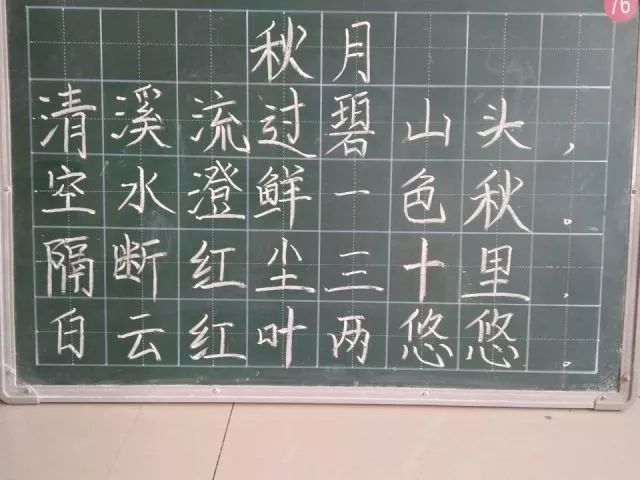 76
秋月
清溪流过碧山头，
空水澄鲜一色秋．
隔断红尘三十里．
白云红叶两悠悠．